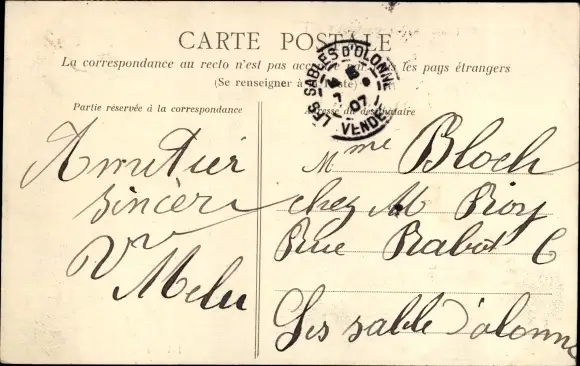 CARTE POSTALE
La correspondance au recto n'est pas acc les pays étrangers
(Se renseigner à te)
Partie réservée à la correspondance
Adresse du destinataire
LES SABLES D'OLONNE
7 07
VENDÉE
Amitier
sincère
Mme Bloch
chez M Roy
Rue Rabot 6
Les sable d'olonne